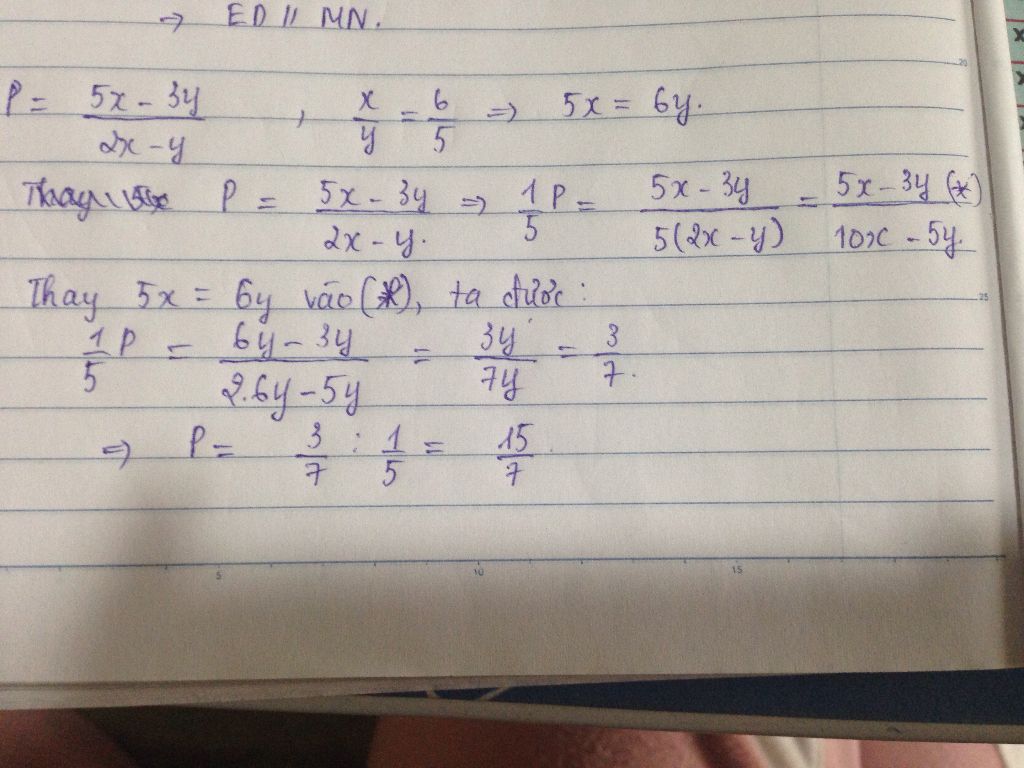 → ED // MN.
P = (5x - 3y)/(2x - y) , x/y = 6/5 => 5x = 6y.
Thay P = (5x - 3y)/(2x - y). => 1/5 P = (5x - 3y)/(5(2x - y)) = (5x - 3y)/(10x - 5y) (*)
Thay 5x = 6y vào (*), ta được:
1/5 P = (6y - 3y)/(2.6y - 5y) = 3y/7y = 3/7.
=> P = 3/7 : 1/5 = 15/7.
5 10 15
20
25